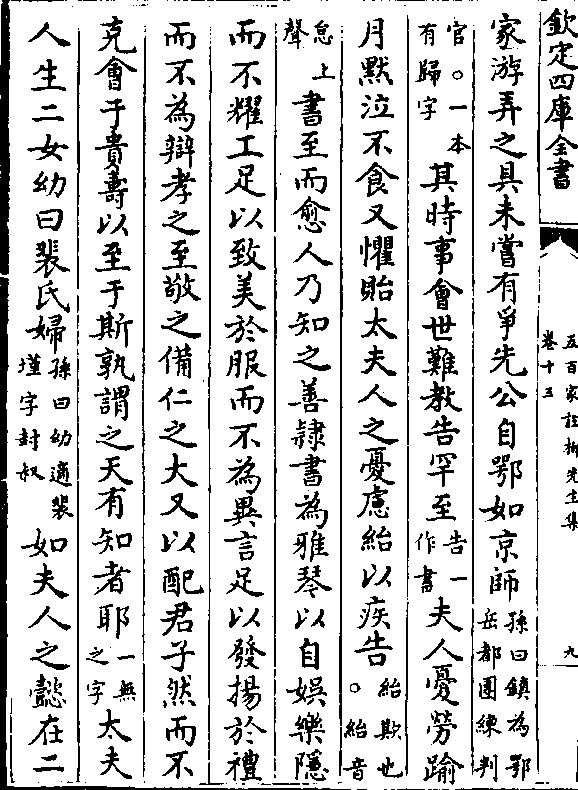 欽定四庫全書
五百家註柳先生集
卷十三
九
家游弄之具未嘗有爭先公自鄂如京師孫曰鎮為鄂岳都團練判
官。一本有歸字其時事會世難教告罕至告一作書夫人憂勞踰
月默泣不食又懼貽太夫人之憂慮紿以疾告紿欺也。紿音
怠上聲書至而愈人乃知之善隸書為雅琴以自娛樂隱
而不耀工足以致美於服而不為異言足以發揚於禮
而不為辯孝之至敬之備仁之大又以配君子然而不
克會于貴壽以至于斯孰謂之天有知者耶一無之字太夫
人生二女幼曰裴氏婦孫曰幼適裴墐字封叔如夫人之懿在二